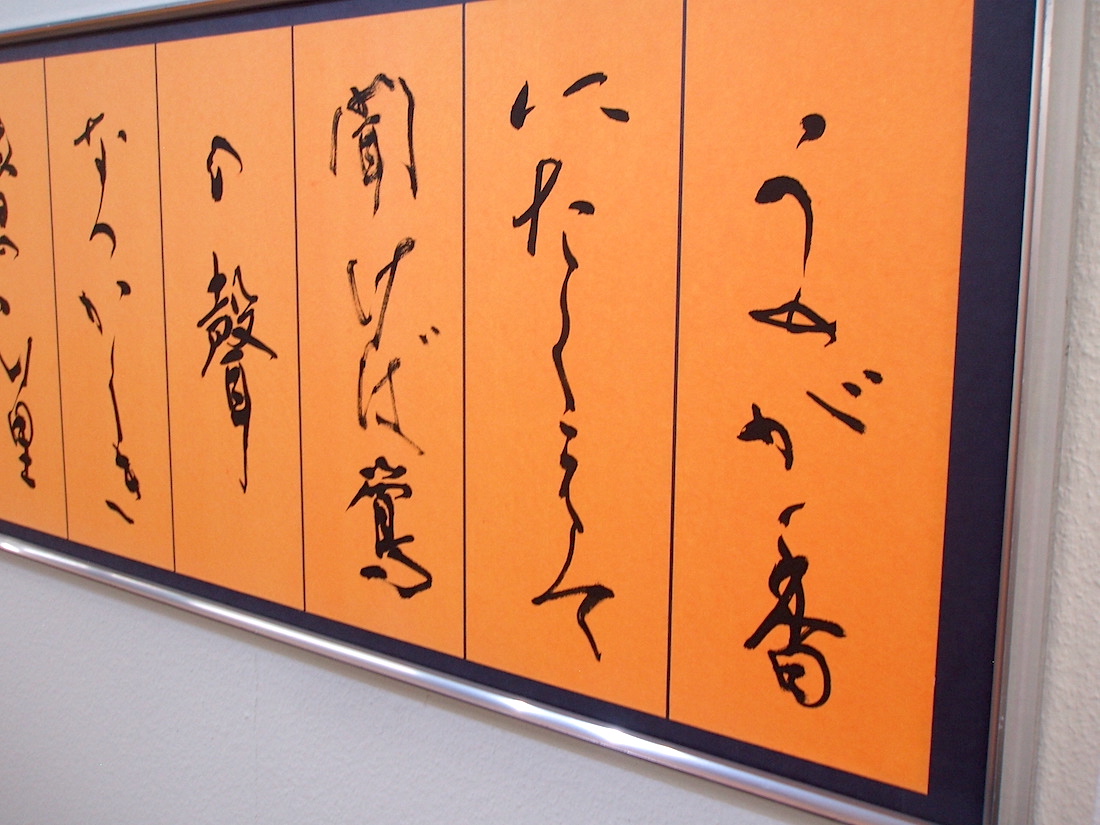 うめが香
にたくへて
聞けば鶯
の聲
なつかしき
里